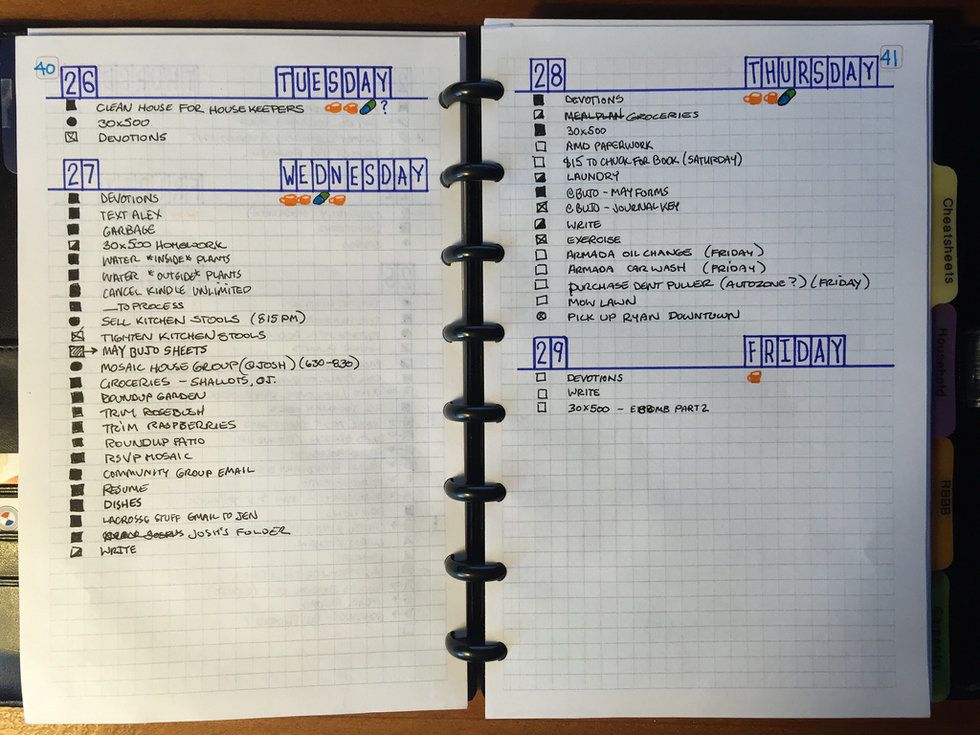 40
26 TUESDAY
CLEAN HOUSE FOR HOUSEKEEPERS ?
30x500
DEVOTIONS
27 WEDNESDAY
DEVOTIONS
TEXT ALEX
GARBAGE
30x500 HOMEWORK
WATER *INSIDE* PLANTS
WATER *OUTSIDE* PLANTS
CANCEL KINDLE UNLIMITED
__TO PROCESS
SELL KITCHEN STOOLS (815PM)
TIGHTEN KITCHEN STOOLS
→ MAY BUJO SHEETS
MOSAIC HOUSE GROUP (@JOSH) (630-830)
GROCERIES - SHALLOTS, OJ.
ROUNDUP GARDEN
TRIM ROSEBUSH
TRIM RASPBERRIES
ROUNDUP PATIO
RSVP MOSAIC
COMMUNITY GROUP EMAIL
RESUME
DISHES
LACROSSE STUFF EMAIL TO JEN
JOSH'S FOLDER
WRITE
41
28 THURSDAY
DEVOTIONS
MEALPLAN GROCERIES
30x500
AMD PAPERWORK
$15 TO CHUCK FOR BOOK (SATURDAY)
LAUNDRY
@BUJO - MAY FORMS
@BUJO - JOURNAL KEY
WRITE
EXERCISE
ARMADA OIL CHANGE (FRIDAY)
ARMADA CAR WASH (FRIDAY)
PURCHASE DENT PULLER (AUTOZONE?) (FRIDAY)
MOW LAWN
PICK UP RYAN DOWNTOWN
29 FRIDAY
DEVOTIONS
WRITE
30x500 - EBOMB PART 2
Cheatsheets
Household
RBBB